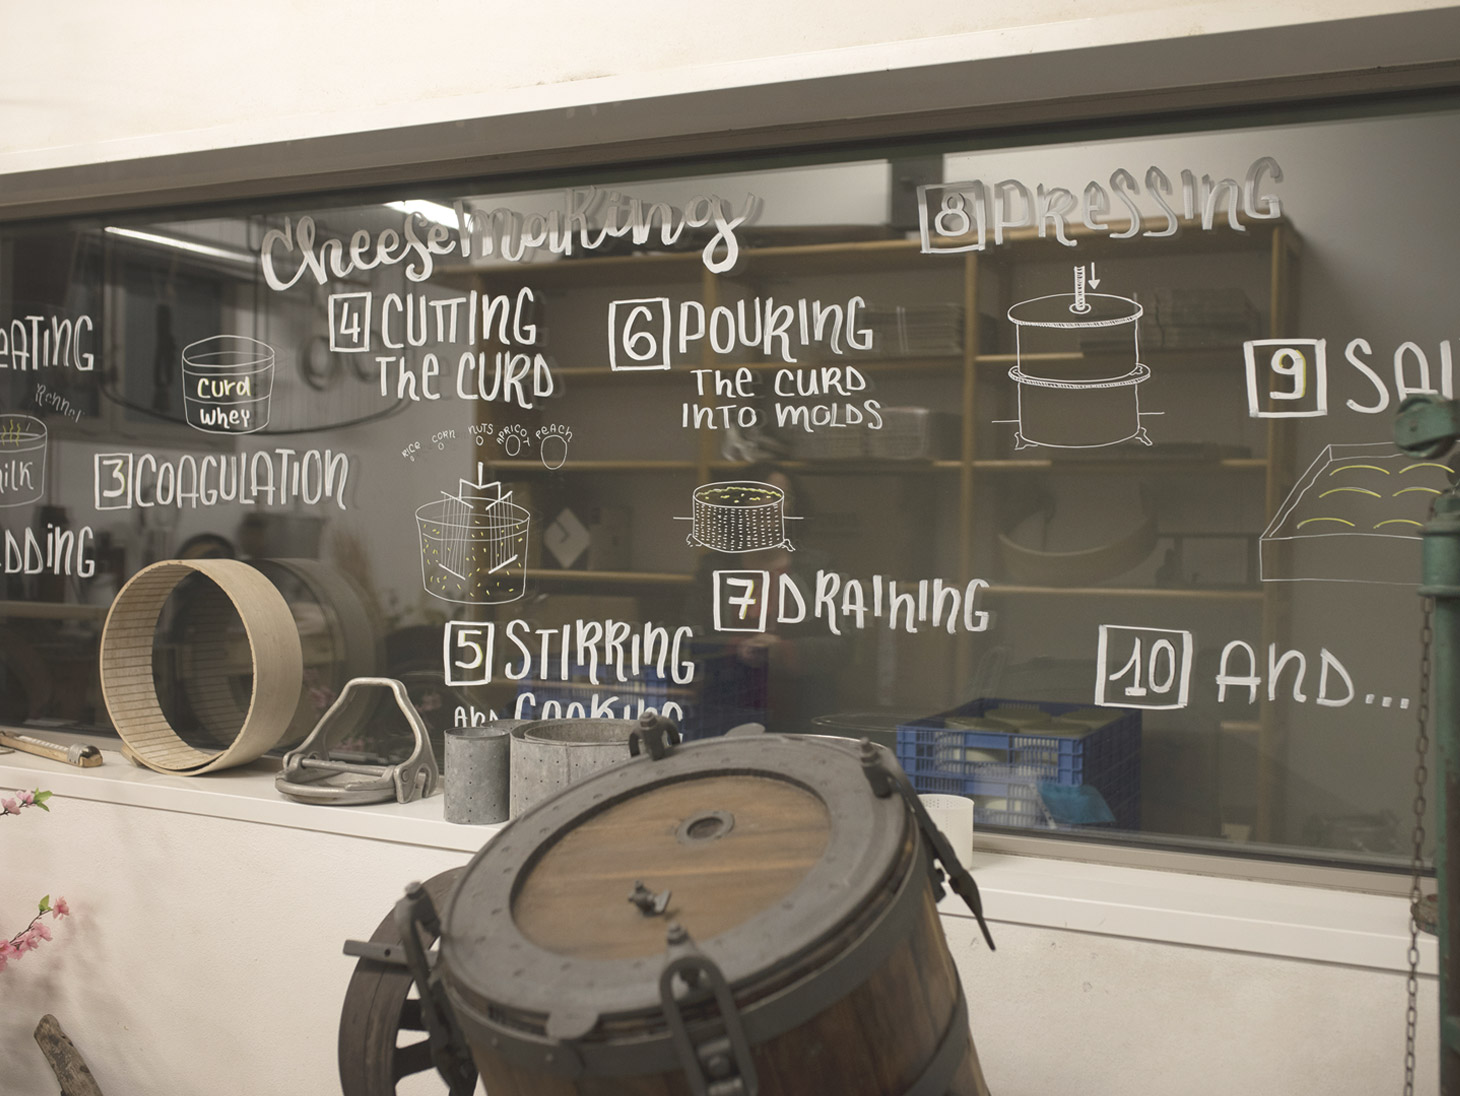 Cheesemaking
eATING
Rennet
milk
DDING
curd
whey
3 COAGULATION
4 CUTTING
The CURD
RICE CORN NUTS APRICOT PEACH
5 STIRRING
AND COOKING
6 POURING
The CURD
INTO MOLDS
7 DRAINING
8 PRESSING
9 SAL
10 AND...